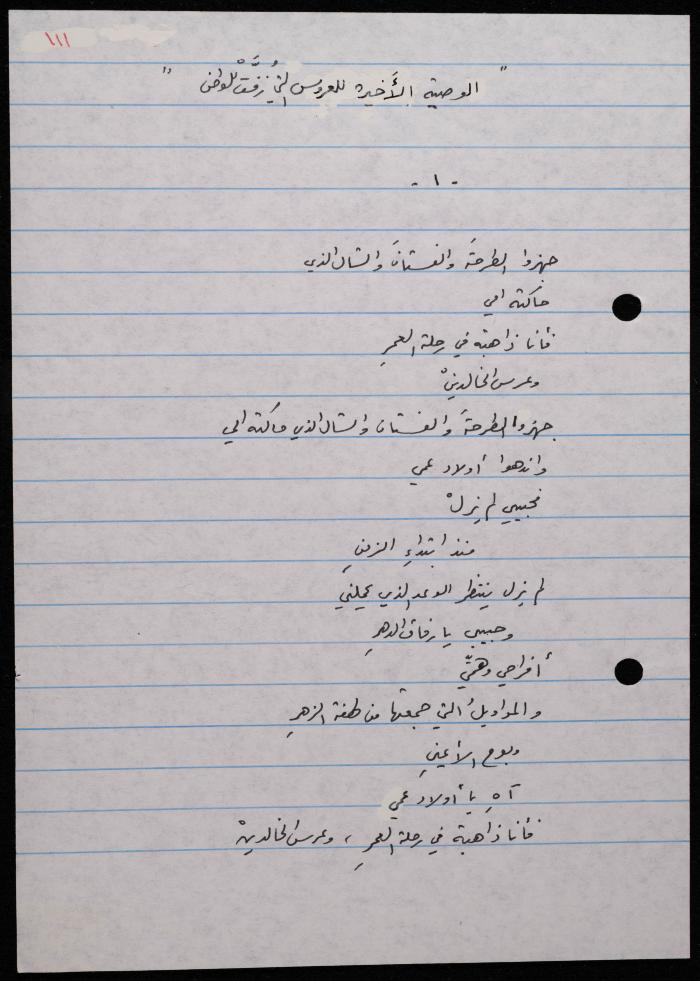 ١١١
" الوصية الأَخيرة للعروس التي زُفَّتْ للوطن "
- ١ -
جهزوا الطرحةَ والفستانَ والشال الذي
حاكته امي
فأنا ذاهبة في رحلة العمرِ
وعرس الخالدينْ
جهزوا الطرحةَ والفستان والشال الذي حاكته امي
واندهوا أولاد عمي
فحبيبي لم يزلْ
منذ ابتداءِ الزمنِ
لم يزل ينتظر الوعد الذي يحملني
وحبيبي يا رفاق الدهرِ
أفراحي وهمّي
والمواويلُ التي جمعتها من طفلة الزهرِ
وبوح الأعينِ
آهِ يا أولاد عمي
فأنا ذاهبة في رحلة العمرِ ، وعرس الخالدينْ